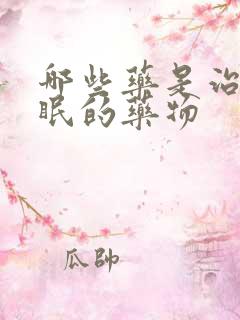 哪些藥是治
眠的藥物
瓜帥